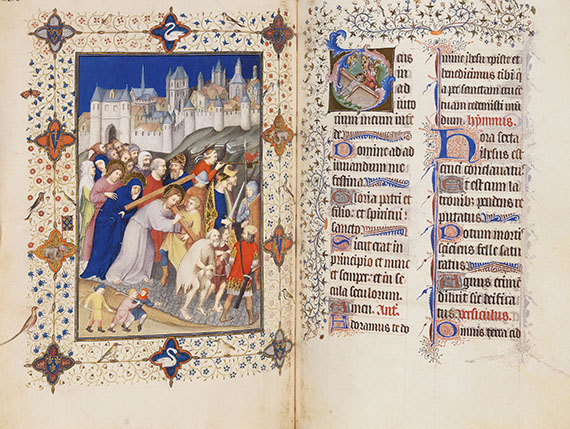 Deus
in ad
iuto
rium meum inten
de
Domine ad ad
iuuandum me
festina
Gloria patri et
filio et spiritui
sancto
Sicut erat in
principio et nunc
et semper et in se
cula seculorum.
Amen. Ant.
Adoramus te do
mine ihesu xpiste et
benedicimus tibi q
a per sanctam cruce
tuam redemisti mun
dum. hymnus.
Hora sexta
ihesus est
cruci conclauatus
est cum la
tronibus pendens re
putatus
Potum
felle satu
ratus
Agnus crimen
diluit sic
versiculus.
Omnis terra ad